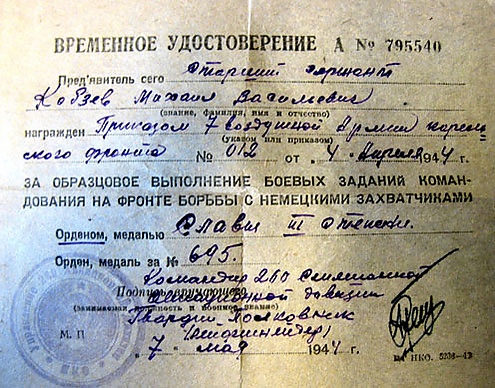 ВРЕМЕННОЕ УДОСТОВЕРЕНИЕ А № 795540
Пред'явитель сего Старший сержант
Кобзев Михаил Васильевич
(звание, фамилия, имя и отчество)
награжден Приказом 7 Воздушной Армии Карель-
(указом или приказом)
ского фронта № 012 от „4" Апреля 1944 г.
ЗА ОБРАЗЦОВОЕ ВЫПОЛНЕНИЕ БОЕВЫХ ЗАДАНИЙ КОМАН-
ДОВАНИЯ НА ФРОНТЕ БОРЬБЫ С НЕМЕЦКИМИ ЗАХВАТЧИКАМИ
Орденом, медалью Славы III степени.
Орден, медаль за № 695.
Командир 260 Смешанной
Подпись вручающего
авиационной дивизии
(занимаемая должность и военное звание)
Гвардии Полковник
М. П
„7" мая 1944 г.
НКО. 5236-43